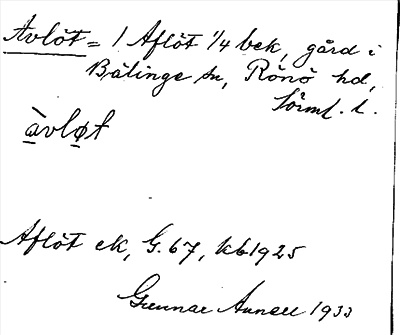 Avlöt = 1 Aflöt 1/4 bek, gård i
Bälinge sn, Rönö hd,
Sörml. l.
àvløt
Aflöt ek, G. 67, kb 1925
Gunnar Annell 1933